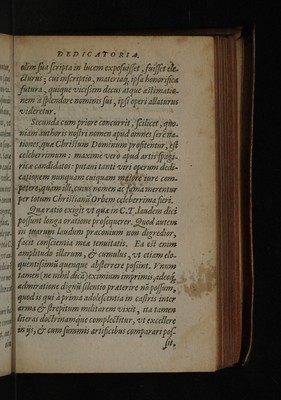 DEDICATORIA.
olim sua scripta in lucem exposuisset, fuisset ele-
cturus; cui inscriptio, materiaq́; ipsa honorifica
futura, quique vicissim decus atque æstimatio
nem à splendore nominis sui, ipsi operi allaturus
videretur.
Secunda cum priore concurrit, scilicet, quo-
niam authoris nostri nomen apud omnes
tiones, quæ Christum Dominum profitentur, est
celeberrimum: maximè vero apud artis spagi-
ricæ candidatos: putaui tanti viri operum dedi-
cationem nunquam cuiquam maiore iure com-
petere, quàm illi, cuius nomen ac fama merentur
per totum Christianũ Orbem celeberrima fieri.
Quæ ratio exigit vt quæ in C.T. laudem dici
possunt longa oratione prosequerer. Quod autem
in tuarum laudum præconium non digredior,
facit conscientia meæ tenuitatis. Ea est enim
amplitudo illarum, & cumulus, vt etiam elo-
quentissimũ quenque absterrere possint. Vnum
tamen (ne nihil dicã) eximium inprimis, adeoq́;
admiratione dignũ silentio præterire nõ possum,
quod is qui à prima adolescentia in castris inter
arma & strepitum militarem vixit, ita tamen
literas doctrinamque complectitur, vt excellere
in ijs, & cum summis artificibus comparari pos-
sit.